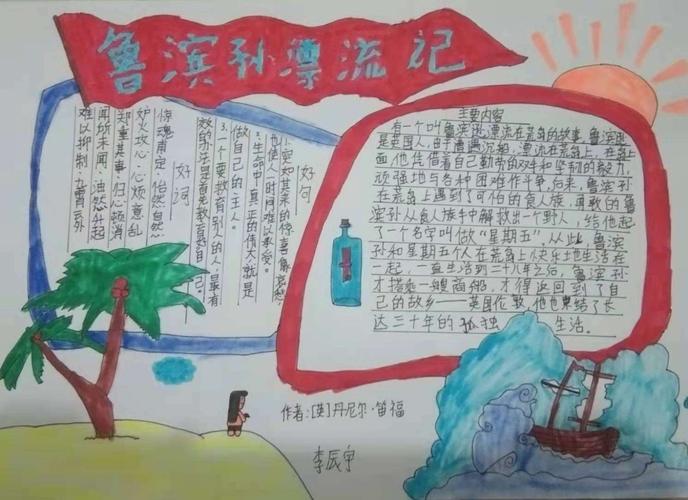 鲁滨孙漂流记
好句
1.突如其来的惊喜像哀愁,
也使人一时间难以承受。
2.生命中真正的伟大,就是
做自己的主人。
3.一个要教育别人的人,最有
效的办法是首先教育好自己。
好词
惊魂甫定、怡然自然
妒火攻心、心烦意乱
郑重其事、归心顿消
闻所未闻、油然升起
难以抑制、九霄云外
主要内容
有一个叫鲁滨逊,漂流在荒岛的故事,鲁滨逊
是英国人,由于遭遇沉船,漂流在荒岛上,在岛上
面他凭借着自己勤劳的双手和坚制的毅力,
顽强地与各种困难作斗争,后来,鲁滨孙
在荒岛上遇到了可怕的食人族,勇敢的鲁
滨孙从食人族手中解救出一个野人,给他起
了一个名字叫做“星期五”。从此,鲁滨
孙和星期五个人在荒岛上快乐地生活在
一起,一直生活到二十八年之后,鲁滨孙
才搭乘一艘商船,才得返回到了自
己的故乡——英国伦敦,他也束结了长
达三十年的孤独 生活。
作者:[英]丹尼尔·笛福
李辰宇